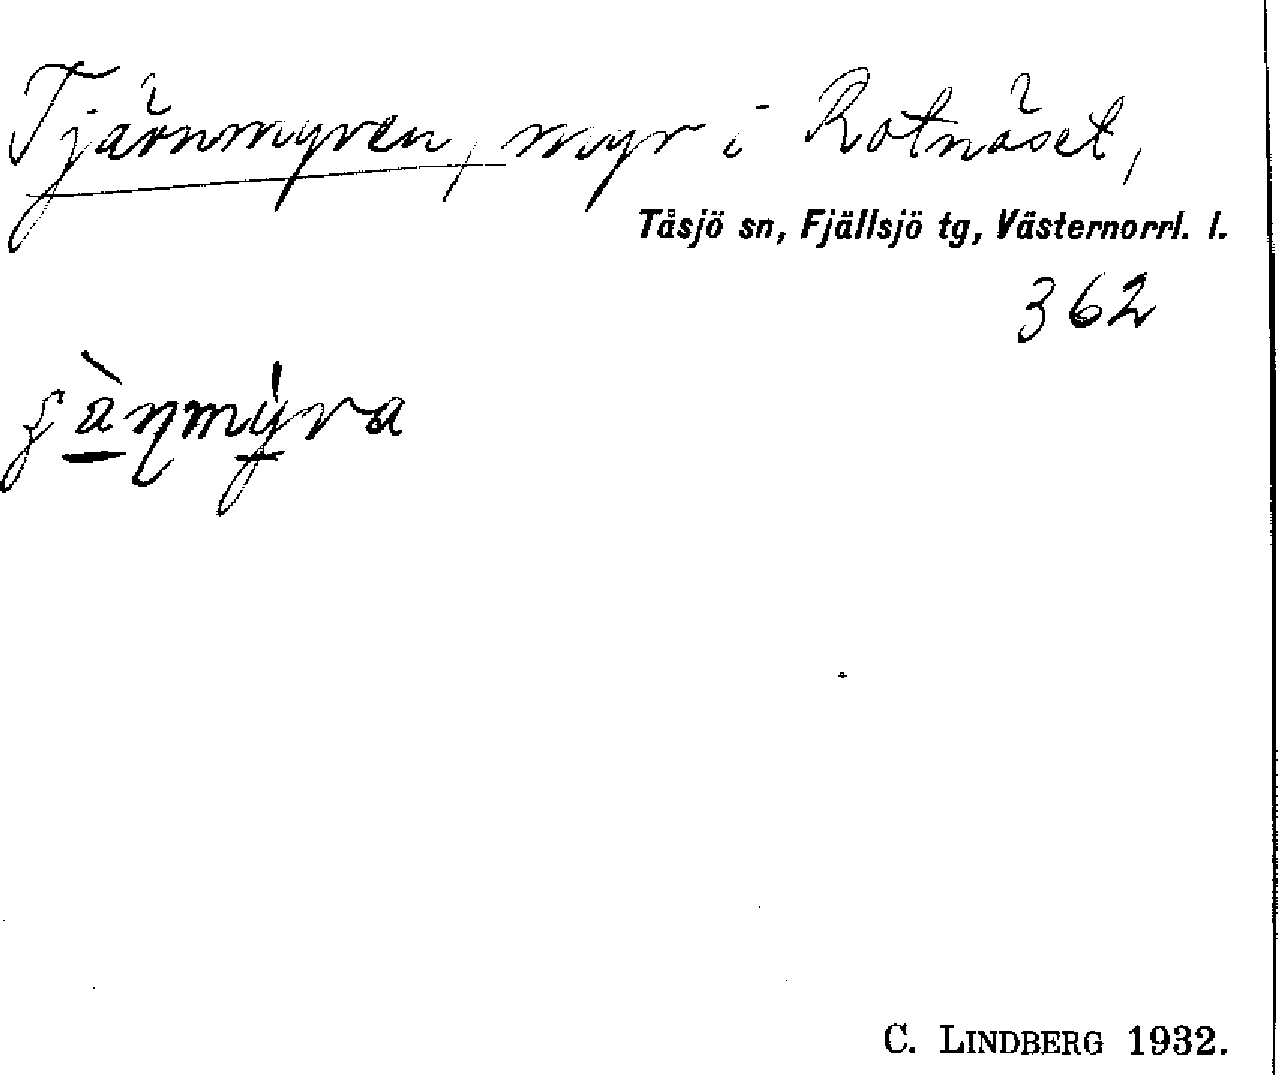 Tjärnmyren, myr i Rotnäset,
Tåsjö sn, Fjällsjö tg, Västernorrl. l.
362
C. LINDBERG 1932.